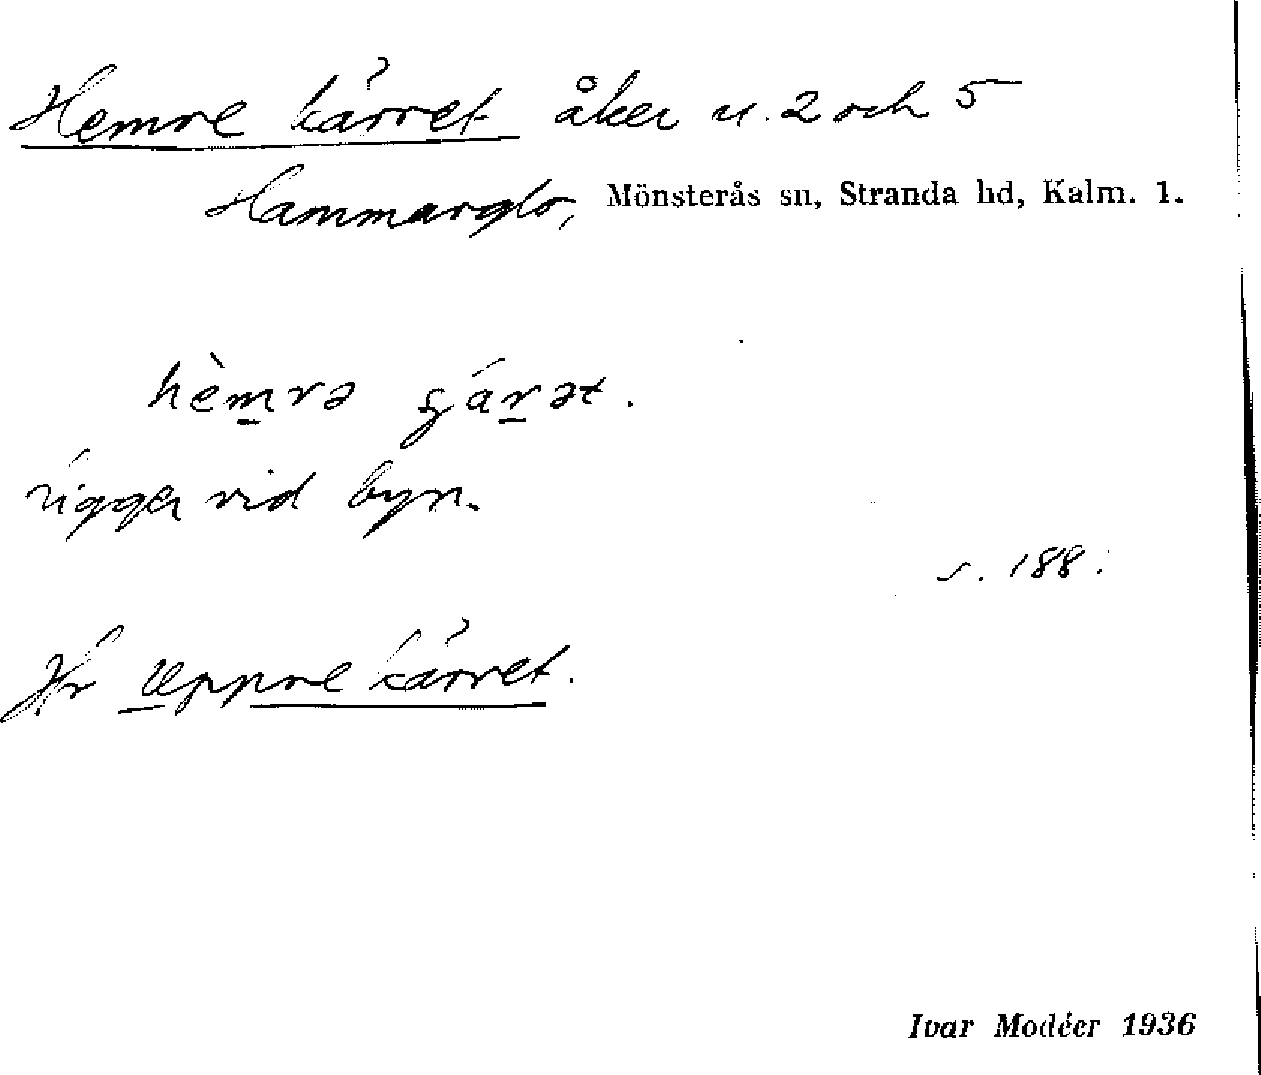 Hemre kärret åker n. 2 och 5
Hammarglo, Mönsterås sn, Stranda hd, Kalm. l.
hèmrə ɕárət.
ligger vid byn.
s. 188.
Jfr Uppre kärret.
Ivar Modéer 1936